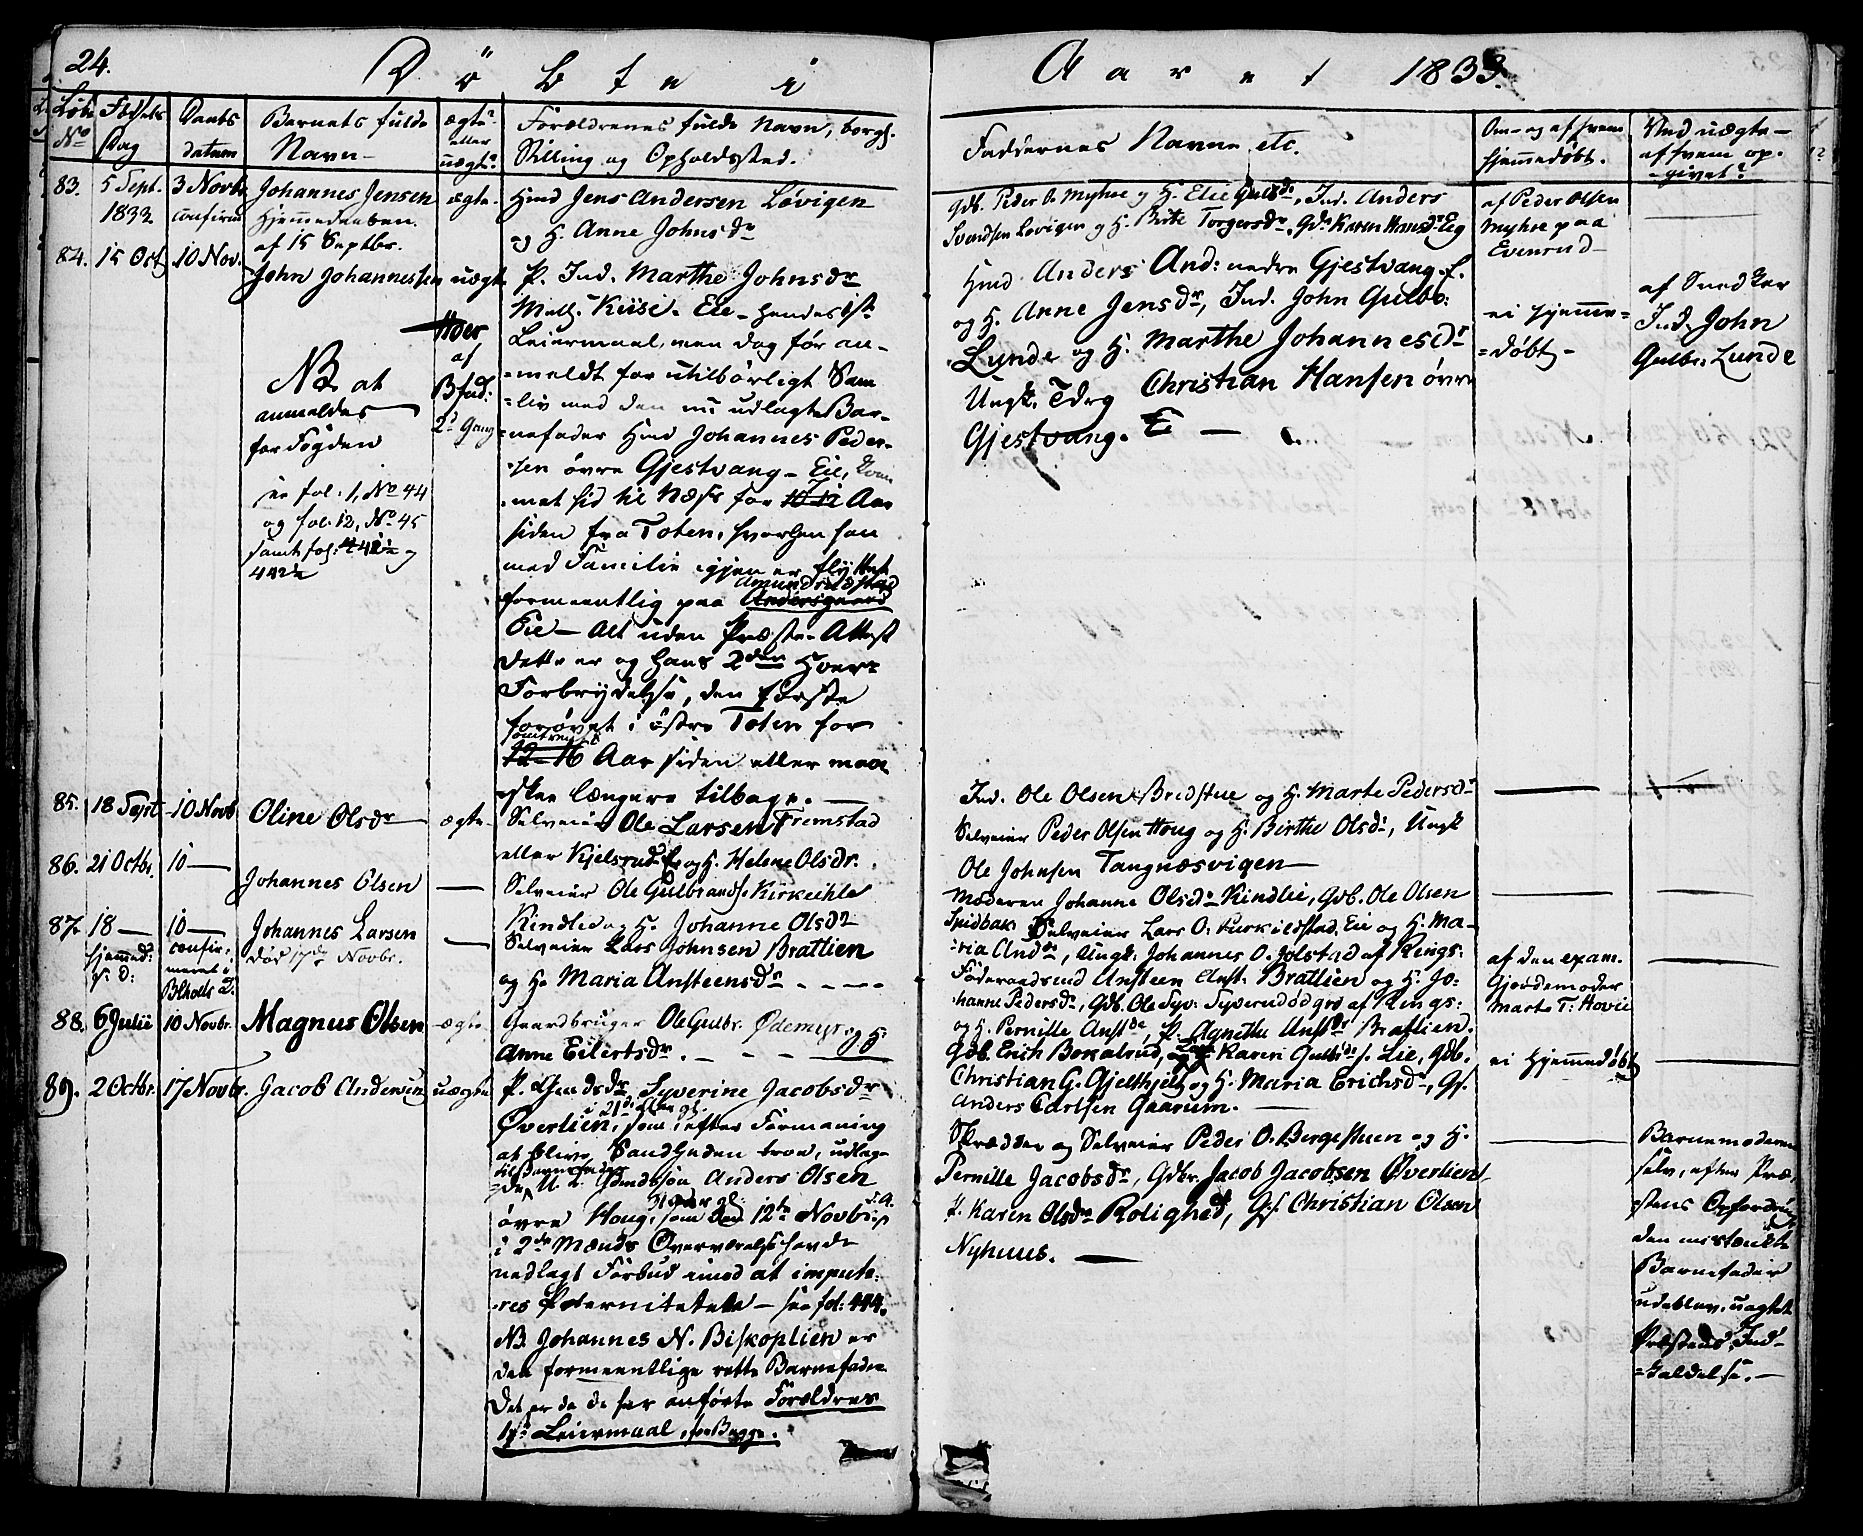 24.
Döbte i
Aaret 1833.
Löbe No
Födsels Dag
Daabs datum
Barnets fulde Navn
ægte eller uægte
Forældrenes fulde Navn, borgl. Stilling og Opholdssted.
Faddernes Navne etc.
Om- og af hvem hjemmedöbt.
Ved uægte af hvem opgivet?
83. 5 Sept. 1833 3 Novbr. confirm
Johannes Jensen
Hjemmedøben
af 15 Septbr.
ægte
Hmd Jens Andersen Lövigen
og H. Anne Johnsdr
Gdb. Peder O. Myhre og H. Elie Gulbsdr, Ind. Anders
Svendsen Lövigen og H. Brite Torgersdr, Gdr Karen Hansdr Eeg
af Peder Olsen
Myhre paa
Evenrud
84. 15 Oct. 10 Nov.
John Johannessen
uægte
NB at
anmeldes
for Fogden
se fol. 1, No 44
og fol. 12, No 45
samt fol.
442
Hoer
af
B fud:
2d Gang
P. Ind. Marthe Johnsdr
Melb. Kiise. Eie - hendes 1st
Leiermaal, men dog før an-
=meldt for utilbörligt Sam
=liv med den nu udlagte Bar-
=nefader Hmd Johannes Peder-
sen övre Gjestvang - Eie, kom
met hid til Næss for Aar
siden fra Toten, hvorhen han
med Familie igjen er flyttet
formeentlig paa Amundrudstad
Eie - Alt uden Præste-Attest
dette er og hans 2den Hoer=
Forbrydelse, den förste
forövet i östre Toten for
12-16 Aar siden eller maa
skee længere tilbage.
Hmd Anders And: nedre Gjestvang E.
og H. Anne Jensdr, Ind. John Gulbr:
Lunde og H. Marthe Johannesdr
Ungk. Tdrg Christian Hansen övre
Gjestvang. E
ei hjemme-
=döbt
af Snedker
Ind. John
Gulbr. Lunde
85. 18 Sept 10 Novb
Oline Olsdr
ægte
Selveier Ole Larsen Fremstad
eller Kjelsrud E og H. Helene Olsdr.
Ind. Ole Olsen Bredstue og H. Marte Pedersdr
Selveier Peder Olsen Houg og H. Birthe Olsdr, Ungk
Ole Johnsen Tangnæsvigen
86. 21 Octbr. 10
Johannes Olsen
Selveier Ole Gulbrands. Kirkeihle
Kindlie og H. Johanne Olsdr
Moderen Johanne Olsdr Kindlie, Gdb. Ole Olsen
87. 18 10
hjemmed: confir-
meret
Johannes Larsen
död 17de Novbr.
Selveier Lars Johnsen Brattlien
og H. Maria Ansteensdr
Selveier Lars O: Eie og H. Ma-
ria Andr, Ungk: Johannes O. Jolstad af Rings:
Föderaadsmd Ansteen Anst. Brattlien og H. Jo-
hanne Pedersdr, Gdb. Ole Syv: Syverudødgrd af Rings:
og H. Pernille Anstdr, P. Agnethe Anstdr Brattlien.
af den exam.
Gjordemoder
Marte T. Hovie
88. 6 Julii 10 Novbr.
Magnus Olsen
ægte
Gaardbruger Ole Gulbr. Ödemyr og H
Anne Eilertsdr.
Gdb. Erich Bonalrud, Karen Gulbrsdr s. Lie, Gdb.
Christian G. Gjelthjelt og H. Maria Erichsdr, Gs.
Anders Carlsen Gaarum.
ei Hjemmedöbt
89. 2 Octbr. 17 Novbr.
Jacob Andersen
uægte
P. Gmdsdr Syverine Jacobsdr
Överlien, i 21de Alder gl. som efter Formaning
at blive Sandheden troe, udlag-
de til Barnefader U. K. Gmdssön Anders Olsen
övre Houg, som den 12te Novbr d. A.
i 2de Mænds Overværelse havde
nedlagt Forbud imod at impute-
res Paterniteten - see fol: 444.
NB Johannes N. Biskoplien er
den formeentlige rette Barnefader
Det er de her anførte Forældres
1ste Leiermaal, for Begge.
Skrædder og Selveier Peder O. Bergestuen og H.
Pernille Jacobsdr, Gdbr. Jacob Jacobsen Överlien
P. Karen Olsdr Rolighed, Gs. Christian Olsen
Nyhuus.
Barnemoderen
selv, efter Præ
stens Opfordring
den mistænkte
Barnefader
udeblev, uagtet
Præstens Ind-
=kaldelse.